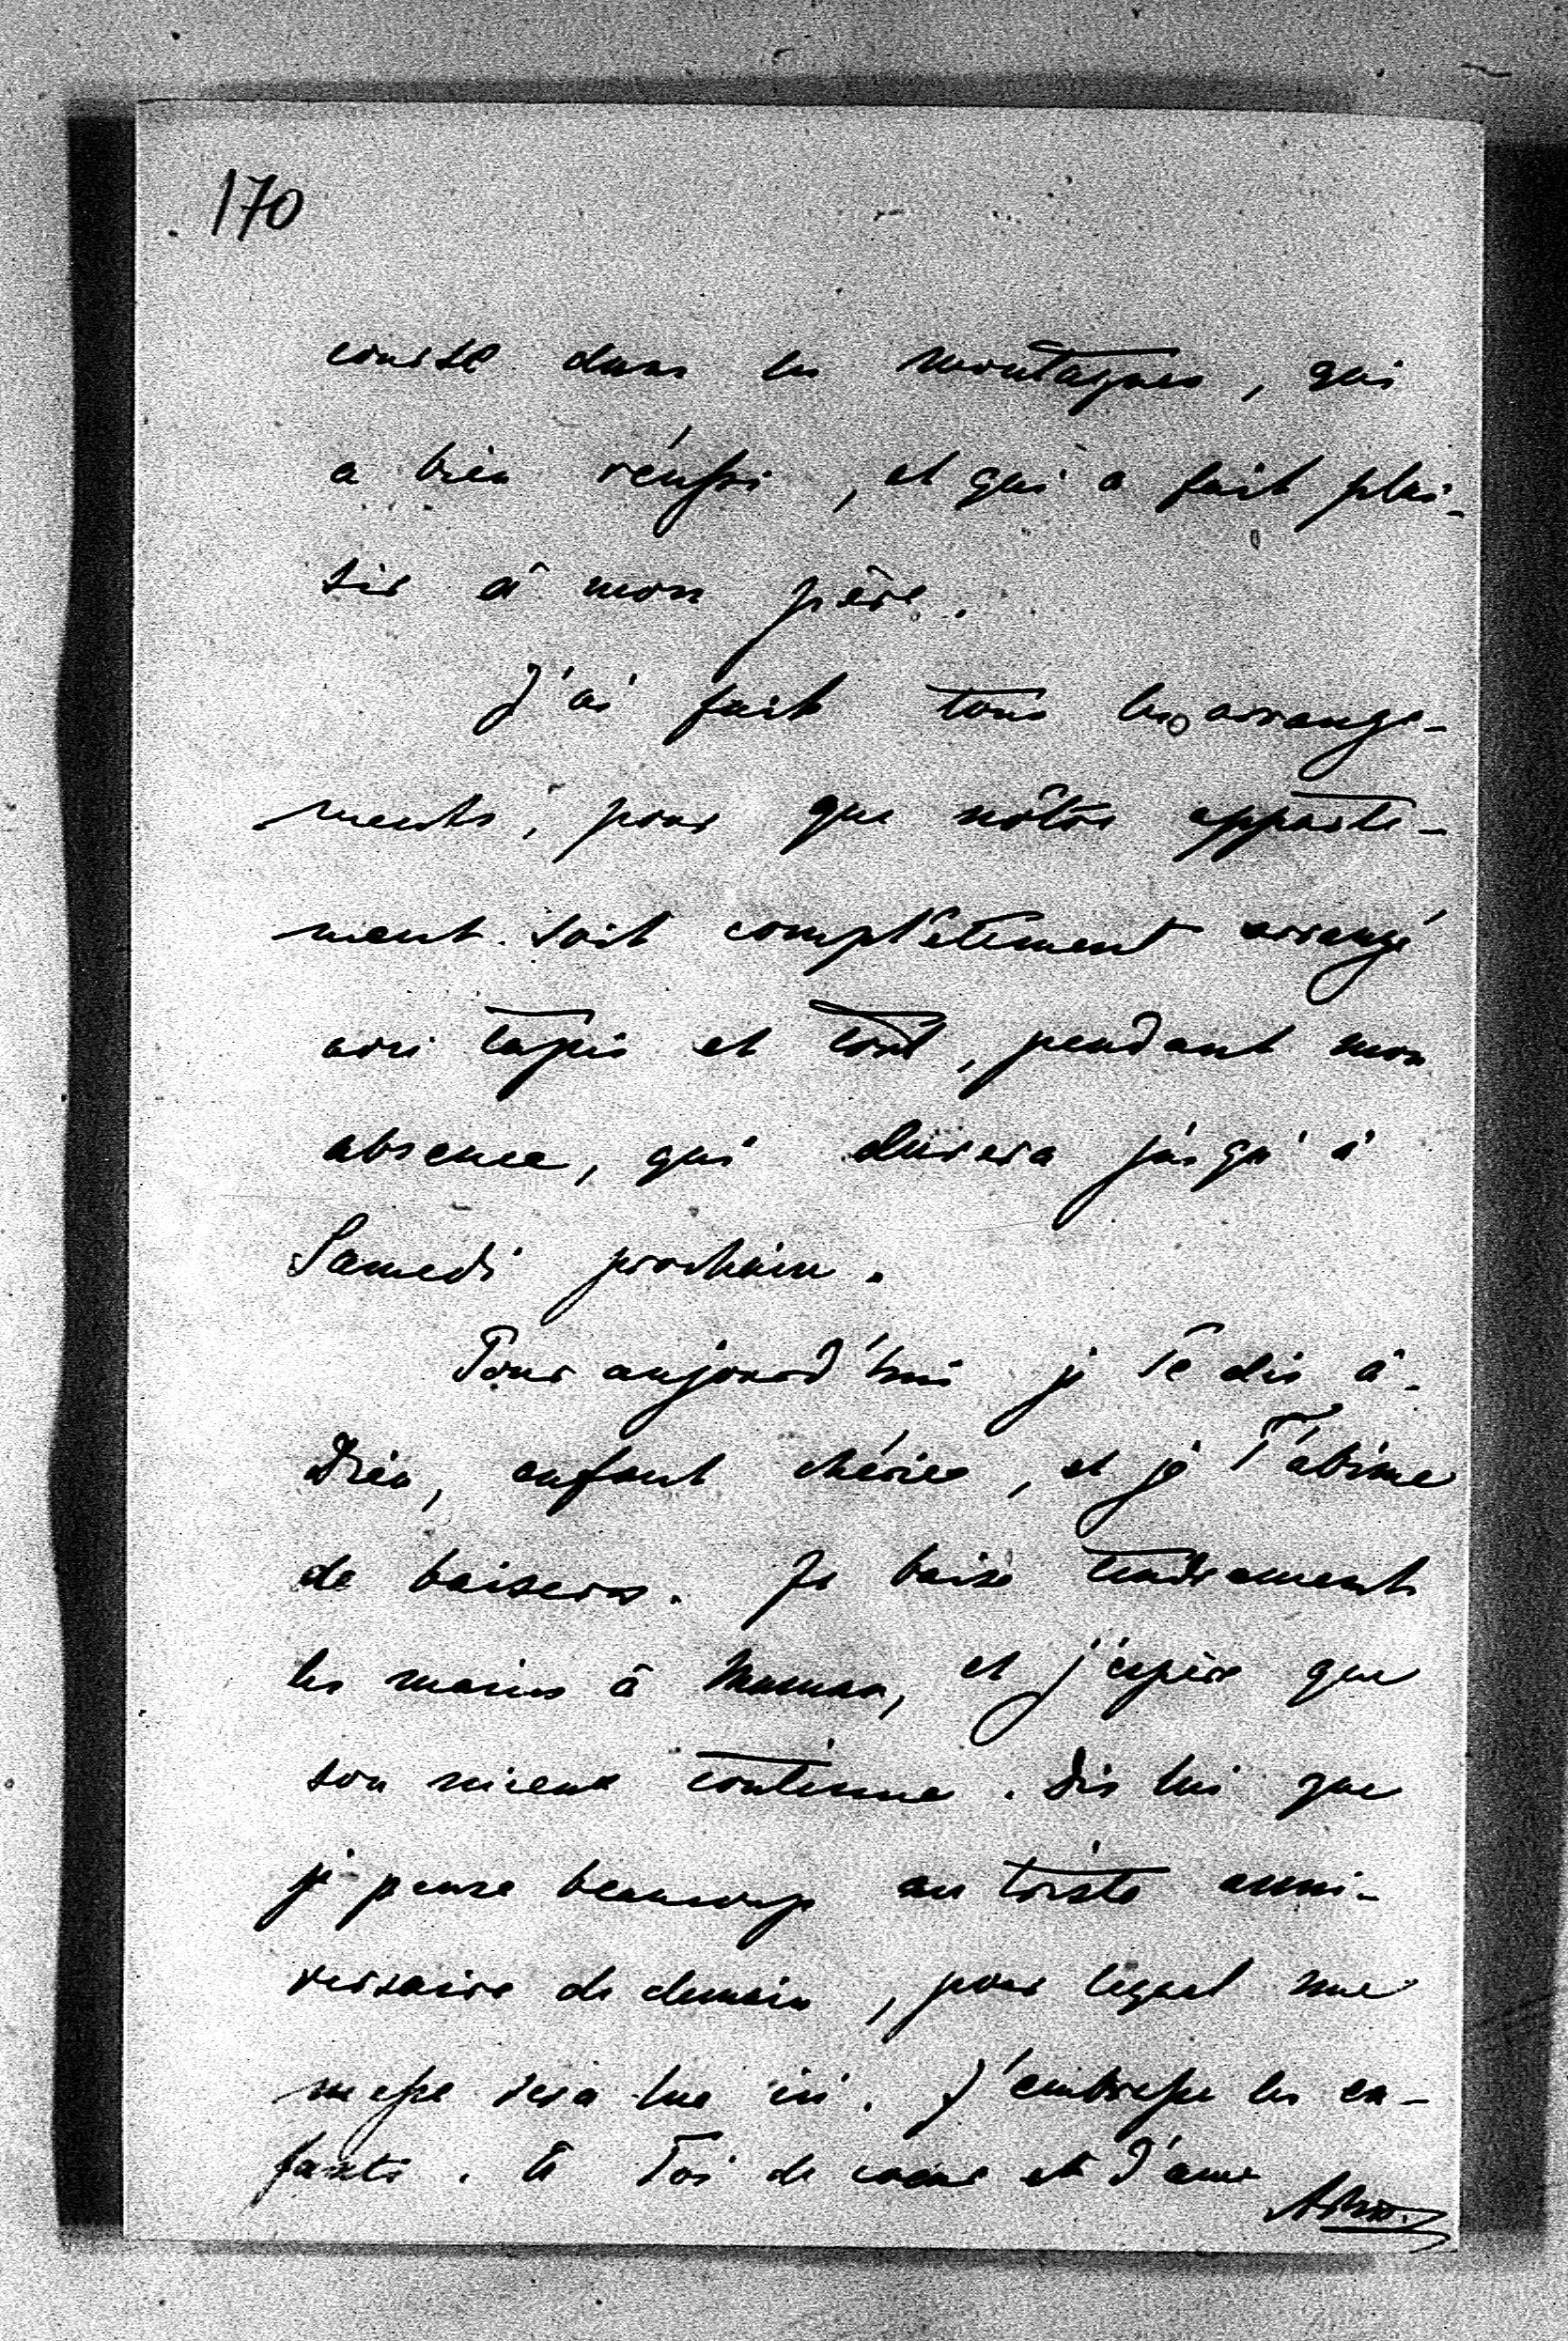 170
course dans les montagnes, qui
a bien réussi, et qui a fait plai-
sir à mon père.
J'ai fait tous les arrange-
ments, pour que nôtre apparte-
ment soit complètement arrangé
avec tapis et tout, pendant mon
absence, qui durera jusqu'à
Samedi prochain.
Pour aujourd'hui je Te dis à-
Dieu, enfant chérie, et je T'abîme
de baisers. Je baise tendrement
les mains à Maman, et j'espère que
son mieux continue. Dis lui que
je pense beaucoup au triste anni-
versaire de demain, pour lequel une
messe sera lue ici. J'embrasse les en-
fants. à Toi de coeur et d'ame